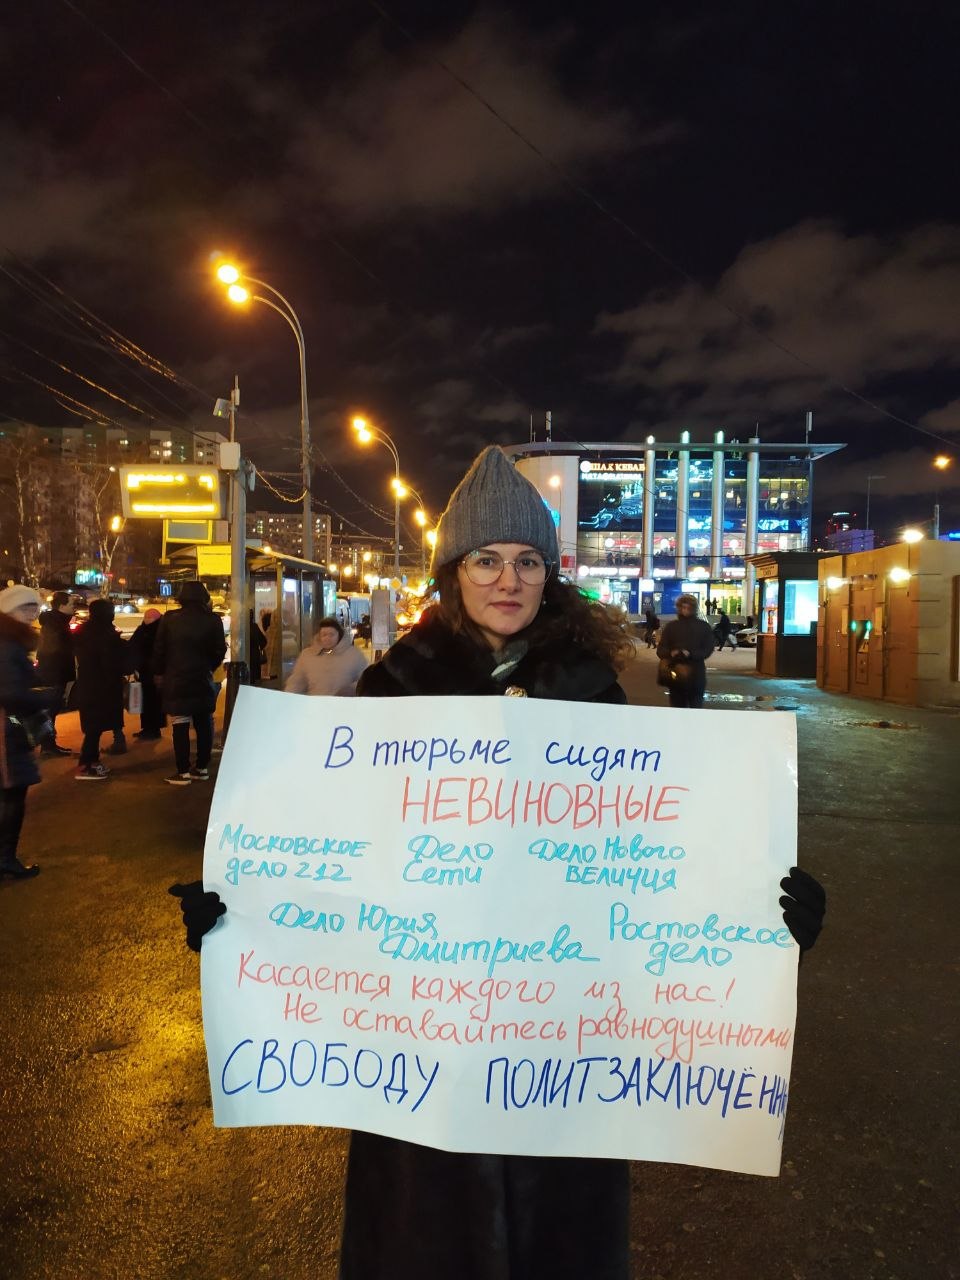 ШАХ КЕБАБ
В тюрьме сидят
НЕВИНОВНЫЕ
Московское Дело Дело Нового
дело 212 Сети ВЕЛИЧИЯ
Дело Юрия Ростовское
Дмитриева дело
Касается каждого из нас!
Не оставайтесь равнодушными
СВОБОДУ ПОЛИТЗАКЛЮЧЁНН